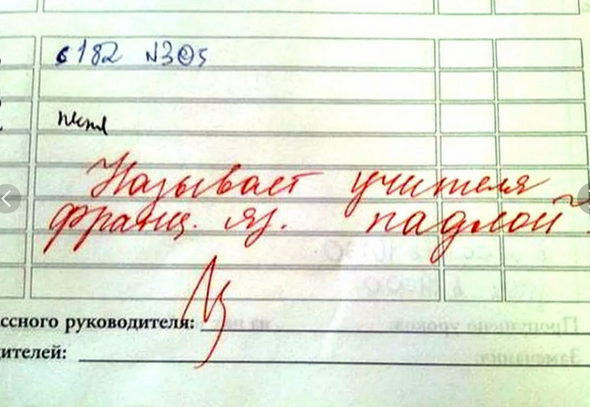 с 182 №305
Называет учителя
франц. яз. падлой
ссного руководителя:
ителей: